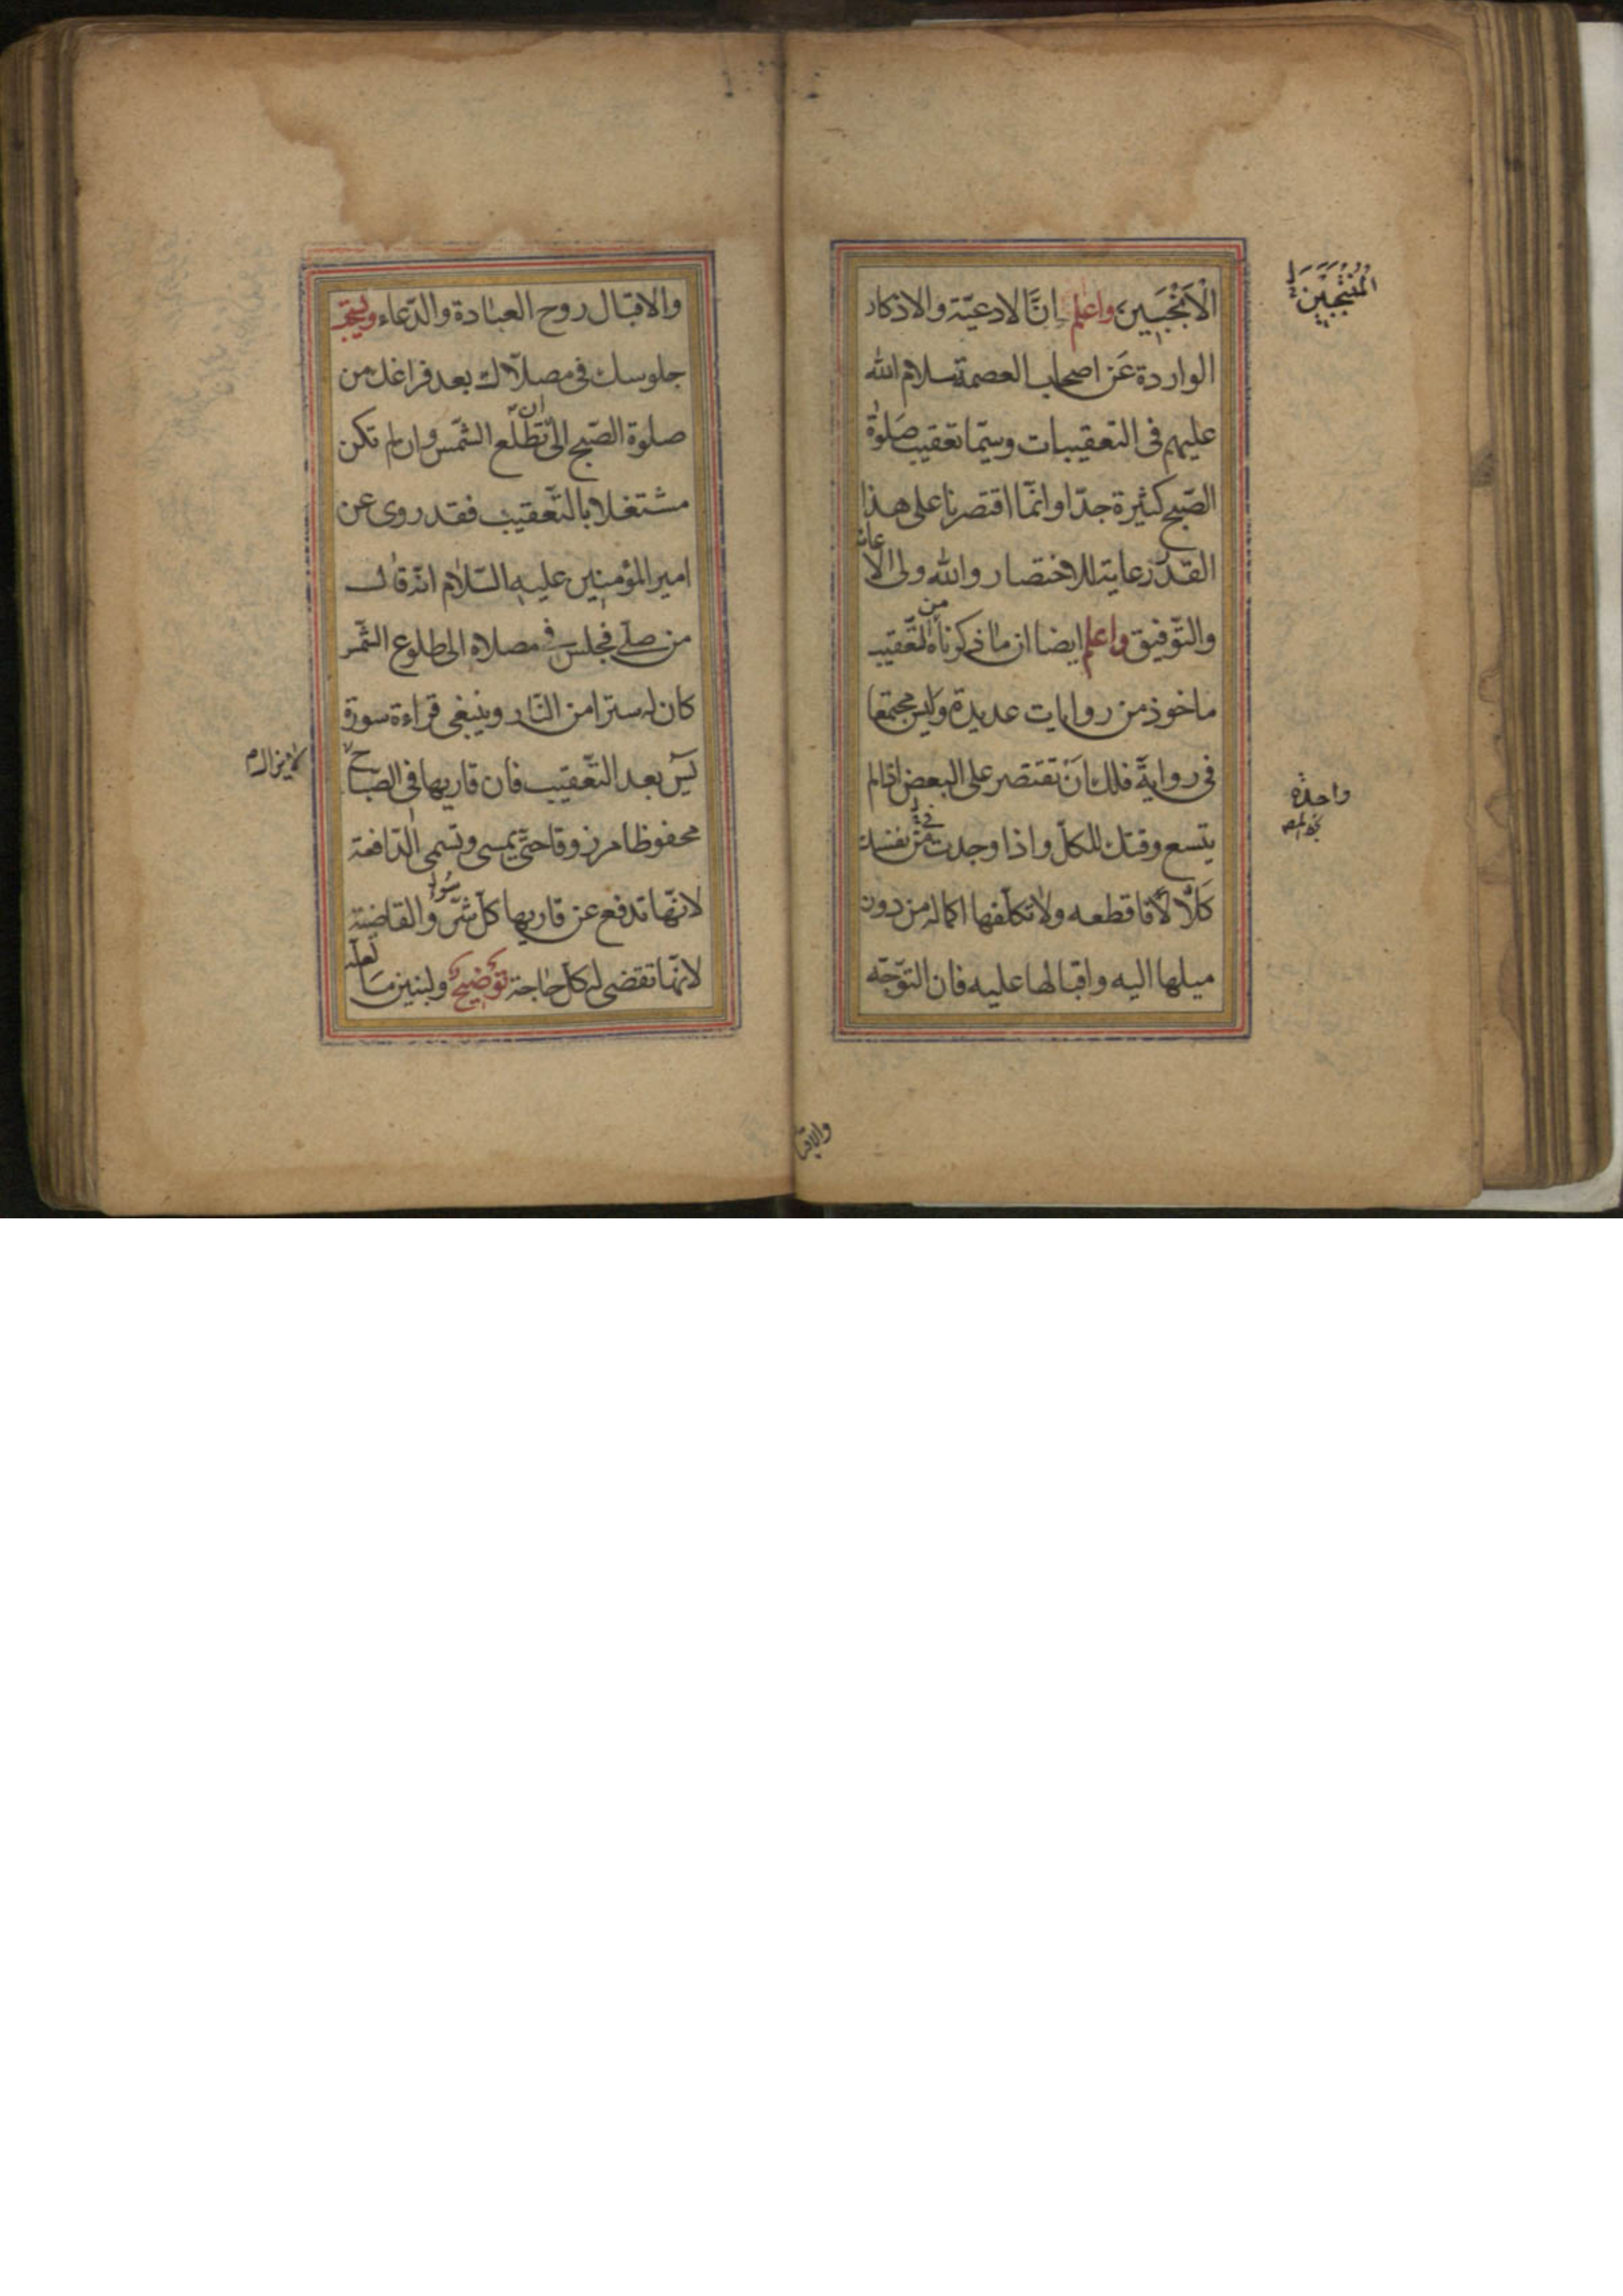 الْاَنْجَبِينَ واعلم اِنَّ الادعيّة والاذكار
الواردة عَن اصحاب العصمة سلام الله
عليهم فى التعقيبات وسيّما تعقيب صَلوٰة
الصّبح كثيرة جدّا وانّما اقتصرنا على هذا
القدر رعاية للاختصار والله ولى الاعانة
والتّوفيق واعلم ايضا ان ما ذكرناه من التّعقيب
ماخوذ من روايات عديدة وليس مجتمعا
فى رواية فلك اَنْ تقتصر على البعض اذا لم
يتسع وقتك للكلّ واذا وجدت من نفسك
كَلَالًا فاقطعه ولا تكلّفها اكماله من دون
ميلها اليه واقبالها عليه فان التوّجّه
المُنْتَجَبِين
واحدة
والاقبا
والاقبال روح العبادة والدّعاء ويستحبّ
جلوسك فى مصلّاك بعد فراغك من
صلوة الصّبح الى ان تطّلع الشّمس وان لم تكن
مشتغلا بالتّعقيب فقد روى عن
امير المؤمنين عليه السّلام انّه قال
من صلّى فجلس فى مصلاه الى طلوع الشّمس
كان له سترا من النّار وينبغى قراءة سورة
يٓس بعد التّعقيب فان قاريها فى الصّباح
محفوظا مرزوقا حتّى يمسى وتسمى الدّافعة
لانّها تدفع عن قاريها كلّ شرّ وسُوء والقاضية
لانّها تقضى له كلّ حاجة توضيحٌ ولنبيّن مَا لعلّه
لا يزال